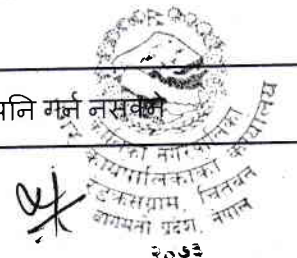 पनि गर्न नसक्ने
नगरपालिका
कार्यपालिकाको कार्यालय
चितवन
बागमती प्रदेश, नेपाल
२०७३